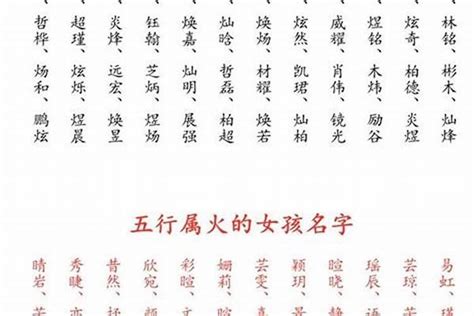 、林铭、彬木、灿烽
、奇、柏德、炎煜
、煜铭、木炜、励谷
、威耀、肖伟、镜光
、炫然、凯珺、灿柏
、焕炀、材耀、焕若
、灿晗、哲磊、柏超
、焕嘉、灿明、展强
、钰翰、芝炳、煜炀
、炎烽、远宏、焕昱
、超瑾、炫烁、煜晨
、哲桦、炀和、鹏炫
五行属火的女孩名字
易虹、
芸琼、
瑶辰、
暄晓、
颖玥、
芸雯、
姗莉、
彩暄、
欣宛、
昔然、
秀睫、
晴岩、